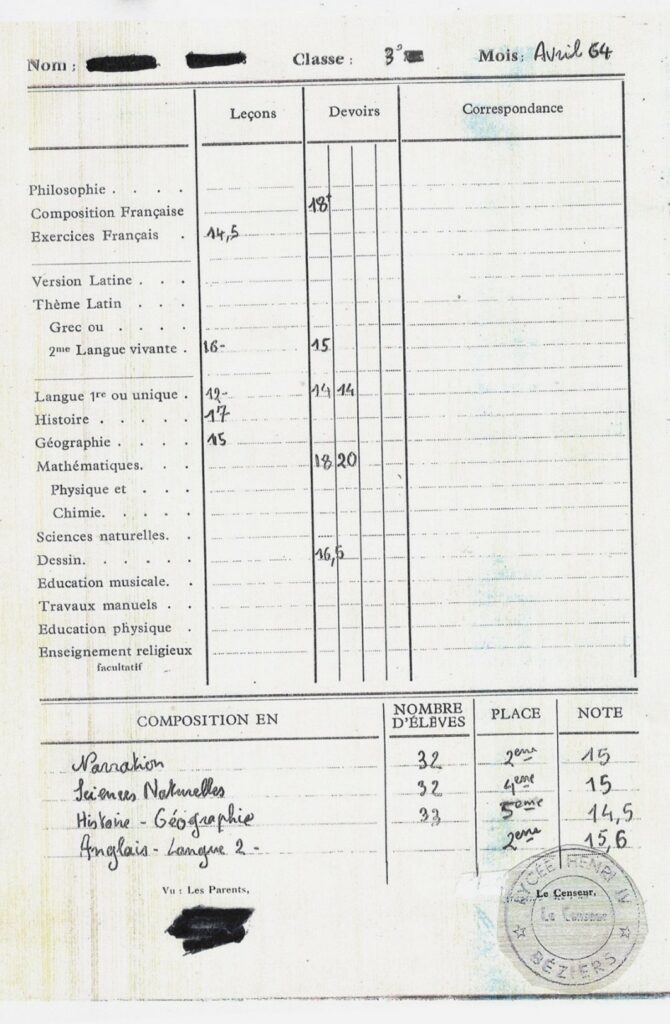 Nom : Classe : 3° Mois : Avril 64
Leçons Devoirs Correspondance
Philosophie . . . .
Composition Française 18+
Exercices Français . 14,5
Version Latine . . .
Thème Latin . . .
Grec ou . . . .
2me Langue vivante . 16- 15
Langue 1re ou unique . 12- 14 14
Histoire . . . . . 17
Géographie . . . . 15
Mathématiques. . . 18 20
Physique et . . .
Chimie. . . . .
Sciences naturelles. .
Dessin. . . . . 16,5
Education musicale. .
Travaux manuels . .
Education physique .
Enseignement religieux
facultatif
COMPOSITION EN NOMBRE D'ÉLÈVES PLACE NOTE
Narration 32 2eme 15
Sciences Naturelles 32 4eme 15
Histoire - Géographie 33 5eme 14,5
Anglais - Langue 2 - 2eme 15,6
Vu : Les Parents,
Le Censeur,
LYCÉE HENRI IV
Le Censeur
BÉZIERS